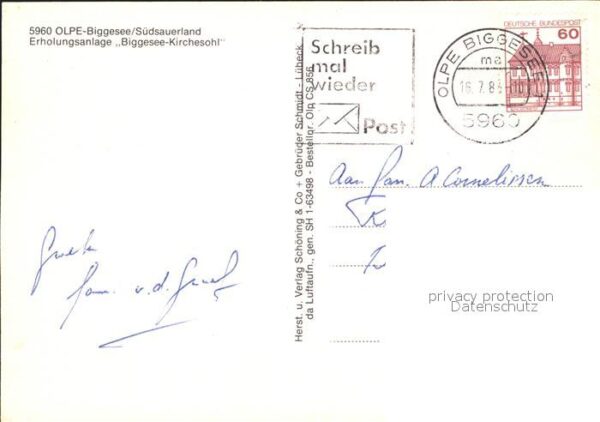 5960 OLPE-Biggesee/Südsauerland
Erholungsanlage „Biggesee-Kirchesohl"
Schreib
mal
wieder
Post
OLPE, BIGGESEE 1
ma
5960
DEUTSCHE BUNDESPOST
60
Herst. u. Verlag Schöning & Co + Gebrüder Schmidt - Lübeck
da Luftaufn., gen. SH 1-63498 - Bestellnr. Olp CS 856
Aan fam. A Cornelissen
fam. v.d.
privacy protection
Datenschutz